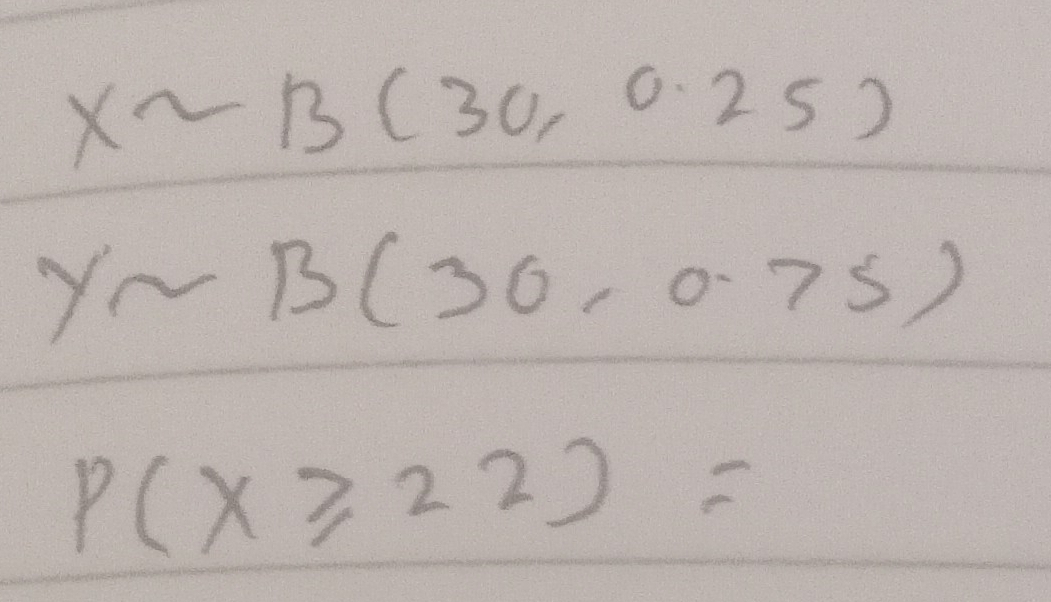 X ~ B(30, 0.25)
Y ~ B(30, 0.75)
P(X ⩾ 22) =